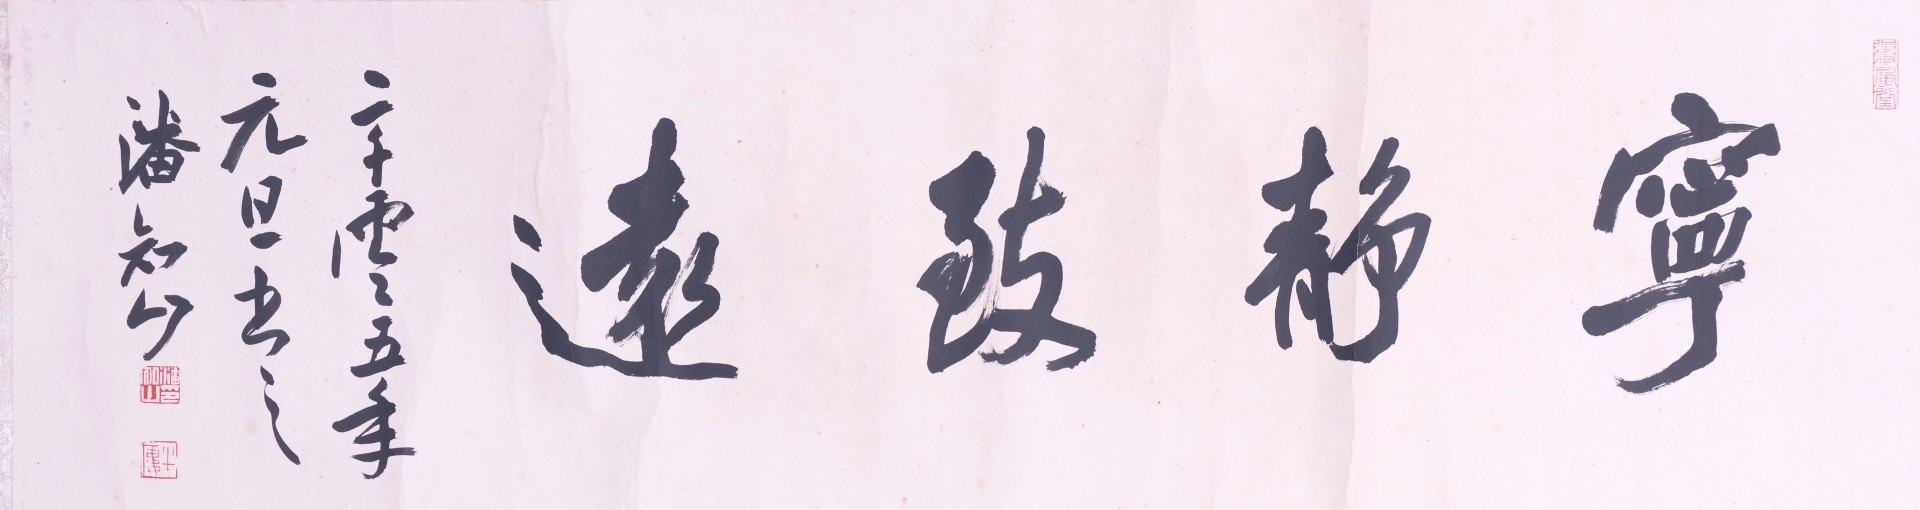 寧靜致遠
二千零零五年
元旦書之
潘知山